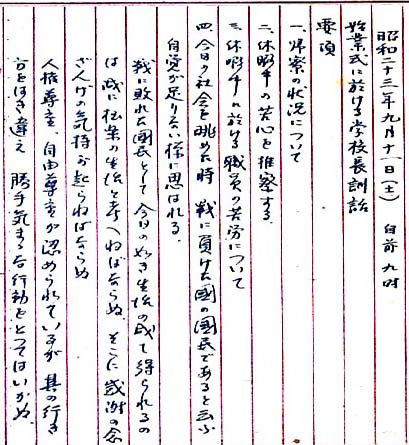 昭和二十三年九月十一日(土) 自前九時
始業式に於ける学校長訓話
要項
一、帰寮の状況について
二、休暇中の苦心を推察する、
三、休暇中に於ける職員の苦労について
四、今日の社会を眺めた時 戦に負けた國の國民であると云ふ
自覚が足りない様に思はれる、
戦に敗れた國民として今日の如き生活の成て得られるの
は 誠に 生活を考へねばならぬ、そこに感謝の念
ざんげの気持が起らねばならぬ
人権尊重、自由尊重が認められているが 其の行き
方をはき違え 勝手気まゝな行動をとつてはいかぬ、